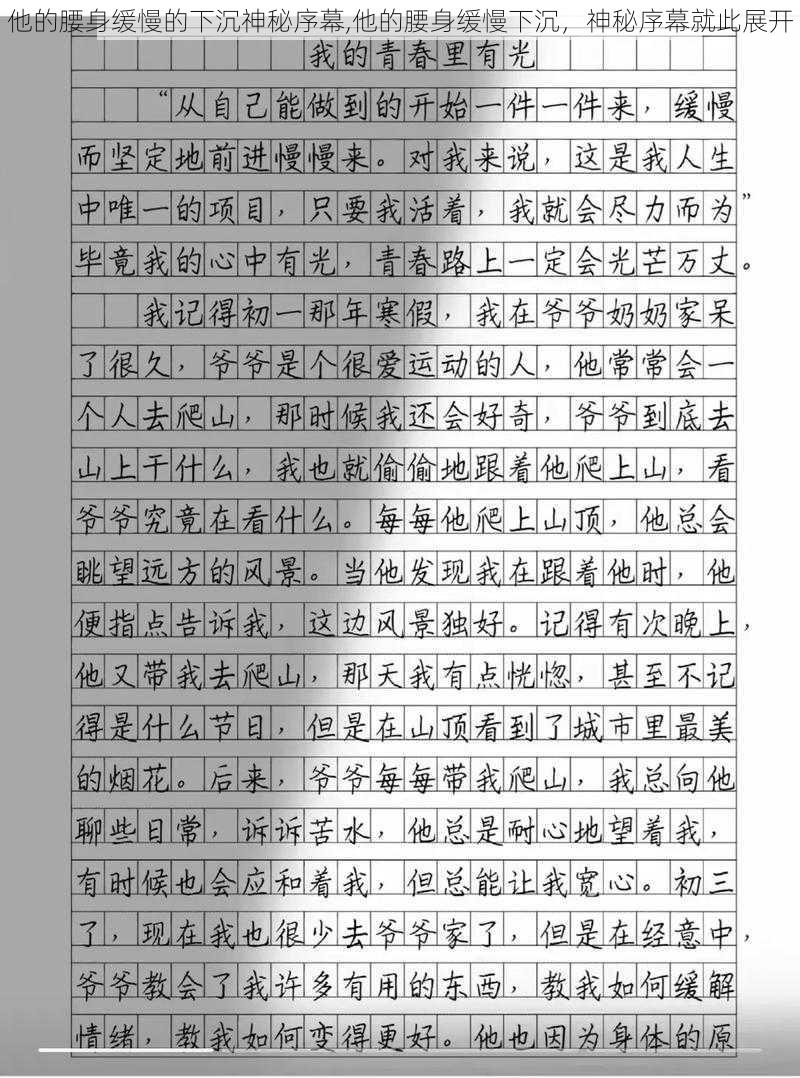 他的腰身缓慢的下沉神秘序幕,他的腰身缓慢下沉，神秘序幕就此展开
我的青春里有光
“从自己能做到的开始一件一件来，缓慢
而坚定地前进慢慢来。对我来说，这是我人生
中唯一的项目，只要我活着，我就会尽力而为”
毕竟我的心中有光，青春路上一定会光芒万丈。
我记得初一那年寒假，我在爷爷奶奶家呆
了很久，爷爷是个很爱运动的人，他常常会一
个人去爬山，那时候我还会好奇，爷爷到底去
山上干什么，我也就偷偷地跟着他爬上山，看
爷爷究竟在看什么。每每他爬上山顶，他总会
眺望远方的风景。当他发现我在跟着他时，他
便指点告诉我，这边风景独好。记得有次晚上，
他又带我去爬山，那天我有点恍惚，甚至不记
得是什么节日，但是在山顶看到了城市里最美
的烟花。后来，爷爷每每带我爬山，我总向他
聊些日常，诉诉苦水，他总是耐心地望着我，
有时候也会应和着我，但总能让我宽心。初三
了，现在我也很少去爷爷家了，但是在经意中，
爷爷教会了我许多有用的东西，教我如何缓解
情绪，教我如何变得更好。他也因为身体的原